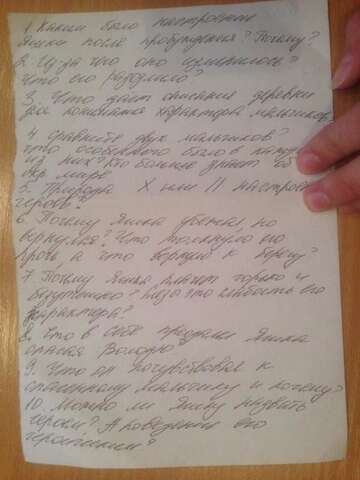 1. Каким было настроение
Яшки после пробуждения? Почему?
2. Из-за чего оно изменилось?
Что его разозлило?
3. Что дает описание деревни
для понимания характера мальчиков
4. Сравните двух мальчиков?
Что особенного было в каждом
из них? Кто больше знает об
окр. мире
5. Природа X или П настрое
героев?
6. Почему Яшка убежал, но
вернулся? Что толкнуло его
прочь а что вернуло к берегу?
7. Почему Яшка плачет горько и
безутешно? Разве это слабость его
характера?
8. Что в себе преодолел Яшка
спасая Володю?
9. Что он почувствовал к
спасенному мальчику и почему?
10. Можно ли Яшку назвать
героем? А поведение его
героическим?